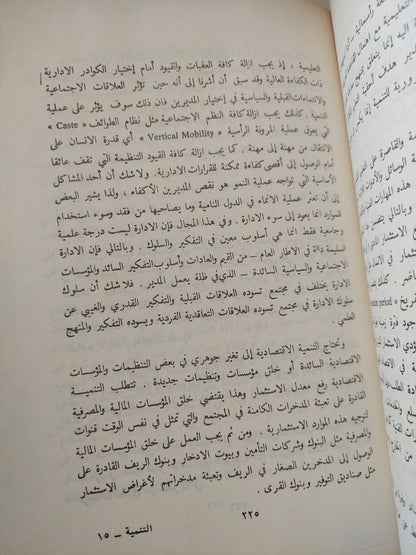 التعليمية ، إذ يجب ازالة كافة العقبات والقيود أمام إختيار الكوادر الادارية
ذات الكفاءة العالية وقد سبق أن أشرنا إلى أنه حين تؤثر العلاقات الاجتماعية
والانتماءات القبلية والسياسية في إختيار المديرين فان ذلك سوف يؤثر على عملية
التنمية . كذلك يجب ازالة كافة النظم الاجتماعية مثل نظام الطوائف « Caste »
التي يعوق عملية المرونة الرأسية « Vertical Mobility » أي قدرة الانسان على
الانتقال من مهنة إلى مهنة . كما يجب ازالة كافة القيود التنظيمة التي تقف عائقا
أمام الوصول إلى أقصى كفاءة ممكنة للقرارات الادارية . ولا شك أن أحد المشاكل
الأساسية التي تواجه عملية النمو هو نقص المديرين الأكفاء ، ولذا يشير البعض
إلى أن تعثر عملية الانماء في الدول النامية وما يصاحبها من فقد وسوء استخدام
للموارد انما يعود إلى سوء الادارة . وفي هذا المجال فإن الادارة ليست درجة علمية
وجامعية فقط انما هي أسلوب معين في التفكير والسلوك . وبالتالي فإن الادارة
السليمة دالة في الاطار العام — من القيم والعادات وأسلوب التفكير السائد والمؤسسات
الاجتماعية والسياسية السائدة — الذي في ظله يعمل المدير . فلا شك أن سلوك
الادارة يختلف في مجتمع تسوده العلاقات القبلية والتفكير القدري والغيبي عن
سلوك الادارة في مجتمع تسوده العلاقات التعاقدية الفردية ويسوده التفكير والمنهج
العلمي .
وتحتاج التنمية الاقتصادية إلى تغير جوهري في بعض التنظيمات والمؤسسات
الاقتصادية السائدة أو خلق مؤسسات وتنظيمات جديدة . تتطلب التنمية
الاقتصادية رفع معدل الاستثمار وهذا يقتضي خلق المؤسسات المالية والمصرفية
القادرة على تعبئة المدخرات الكامنة في المجتمع والتي تمثل في نفس الوقت قنوات
لتوجيه هذه الموارد الاستثمارية . ومن ثم يجب العمل على خلق المؤسسات المالية
والمصرفية مثل البنوك وشركات التأمين وبيوت الادخار وبنوك الريف القادرة على
الوصول إلى المدخرين الصغار في الريف وتعبئة مدخراتهم لأغراض الاستثمار
مثل صناديق التوفير وبنوك القرى .
٢٢٥
التنمية — ١٥